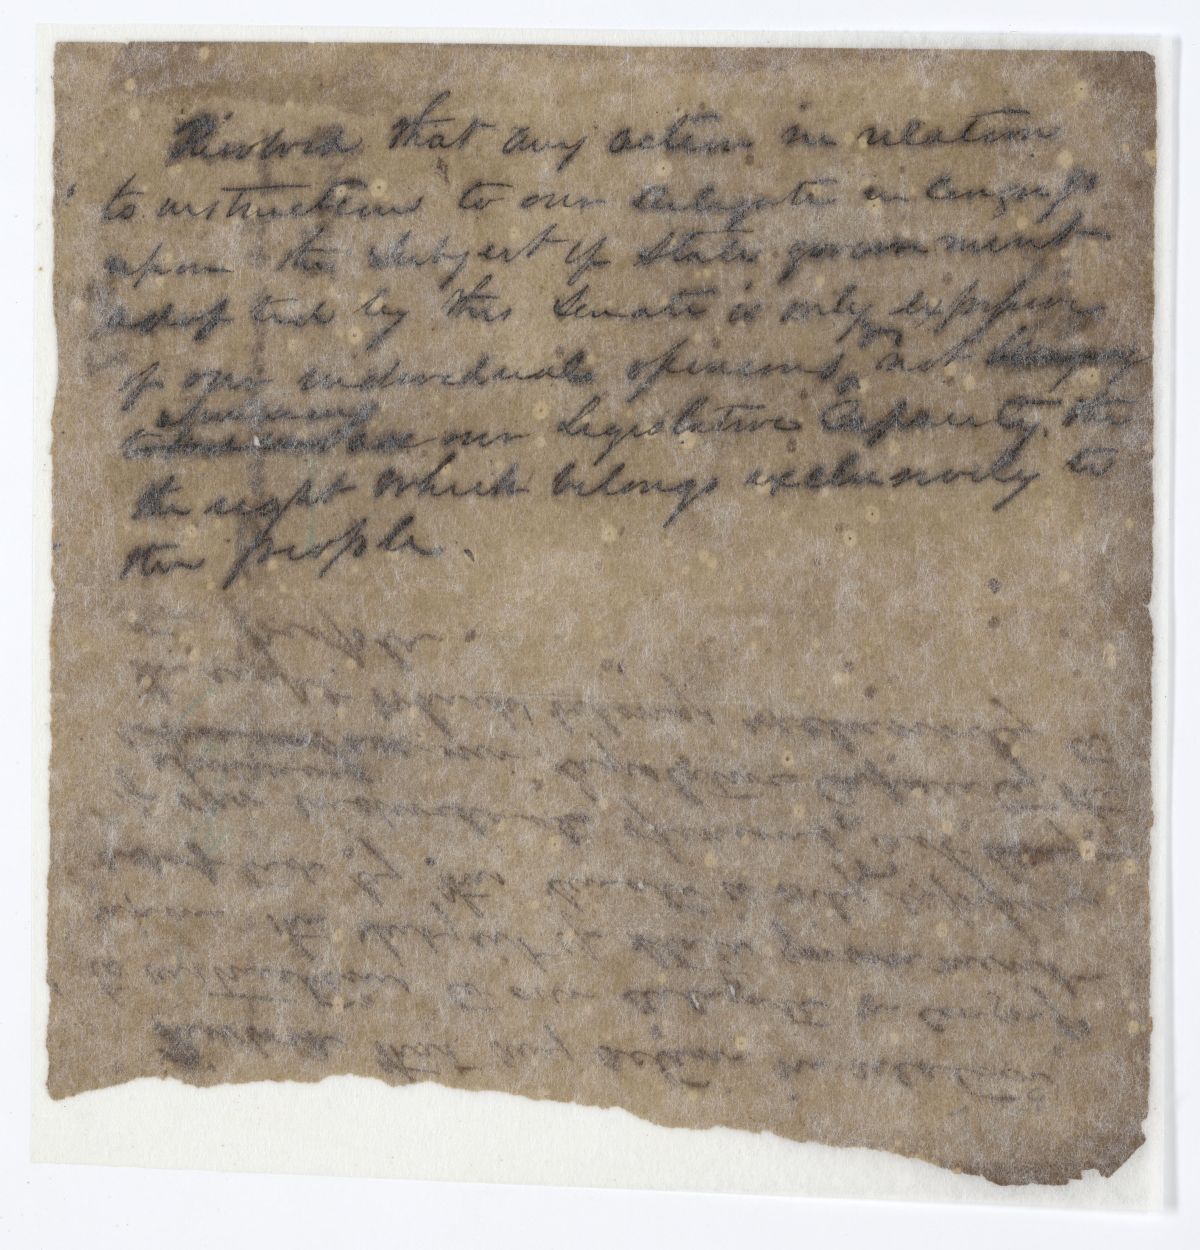 Resolved that any action in relation
to instructions to our delegate in Congress
upon the Subject of State government
adopted by this Senate is only expressive
of our individual opinions, & not
to our Legislative Capacity, the
the right which belongs exclusively to
the people.